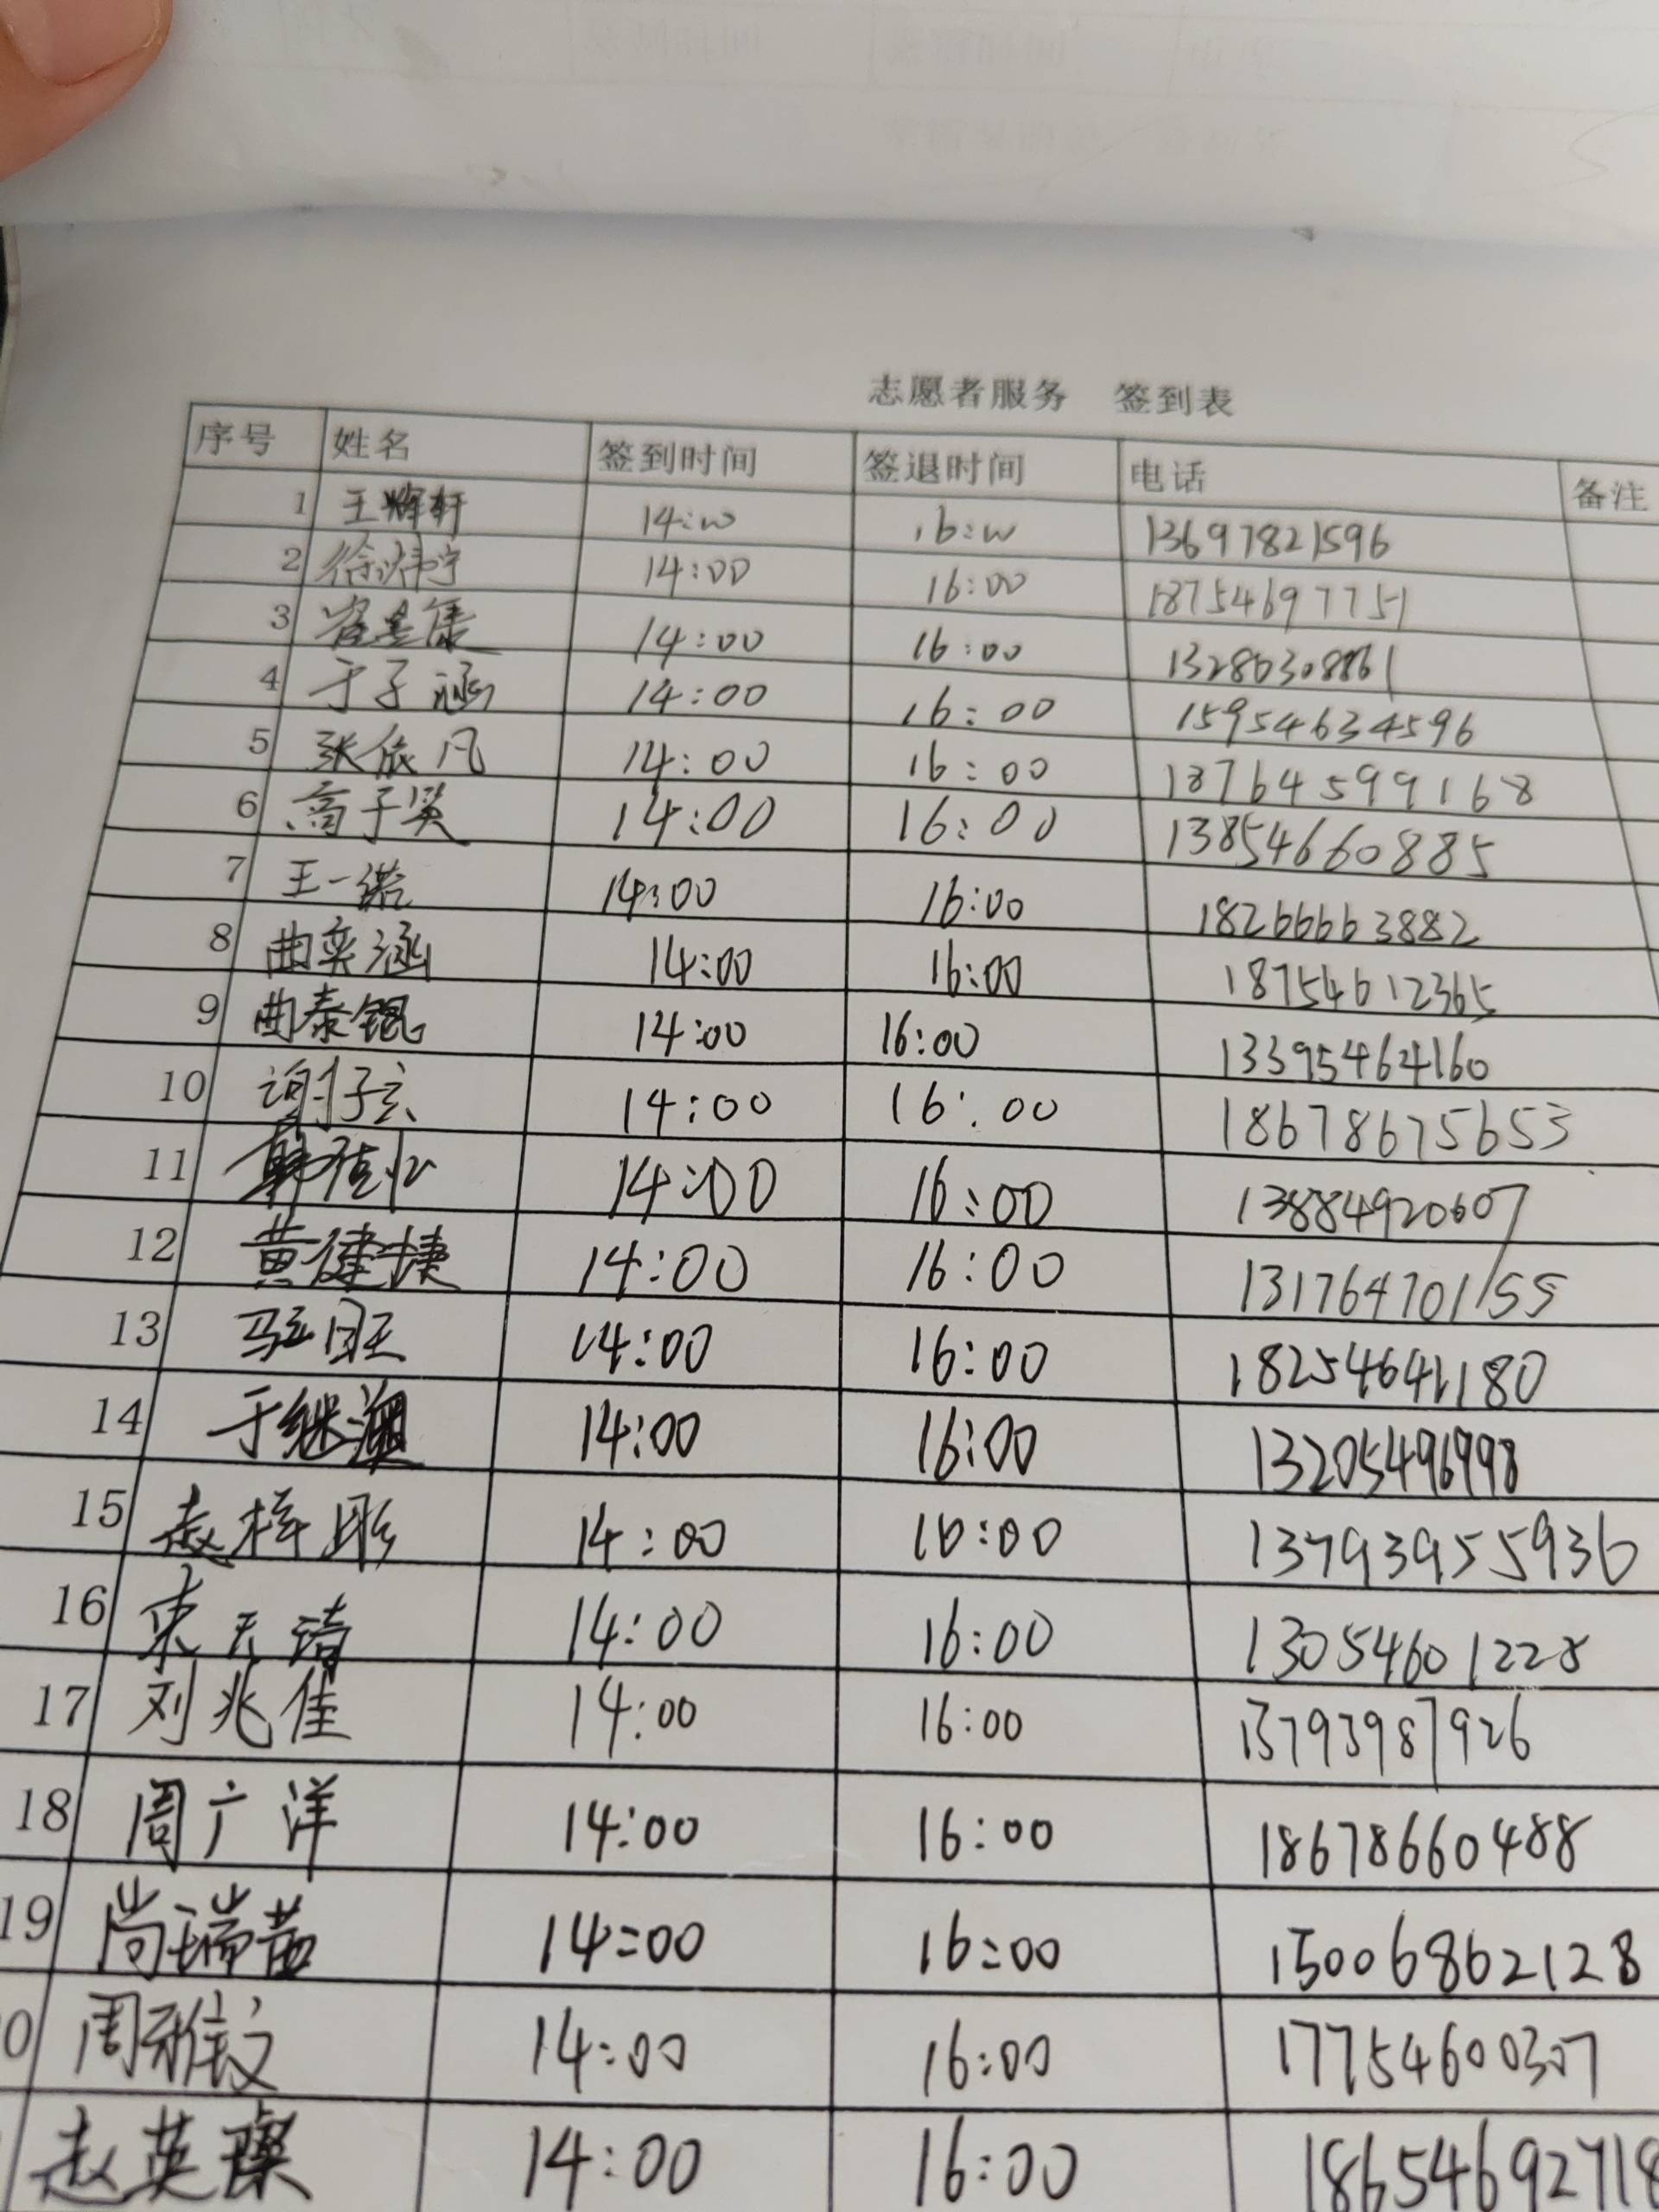 志愿者服务 签到表
序号 姓名 签到时间 签退时间 电话 备注
1 王烨轩 14:00 16:00 13697821596
2 14:00 16:00 18754697751
3 14:00 16:00
4 于子涵 14:00 16:00 15954634596
5 张依凡 14:00 16:00 18764599168
6 商子昊 14:00 16:00 13854660885
7 王一诺 14:00 16:00 18266663882
8 曲奕涵 14:00 16:00 18754612365
9 曲泰锟 14:00 16:00 13395464160
10 谢仔玄 14:00 16:00 18678675653
11 14:00 16:00 13884920607
12 黄健捷 14:00 16:00 13176470155
13 14:00 16:00 18254641180
14 于继澳 14:00 16:00 13205496998
15 赵梓彤 14:00 16:00 13793955936
16 14:00 16:00 13054601228
17 刘兆佳 14:00 16:00 13793987926
18 周广洋 14:00 16:00 18678660488
19 尚瑞茁 14:00 16:00 15006862128
0 周雅文 14:00 16:00 17754600307
赵英璨 14:00 16:00 18654692718